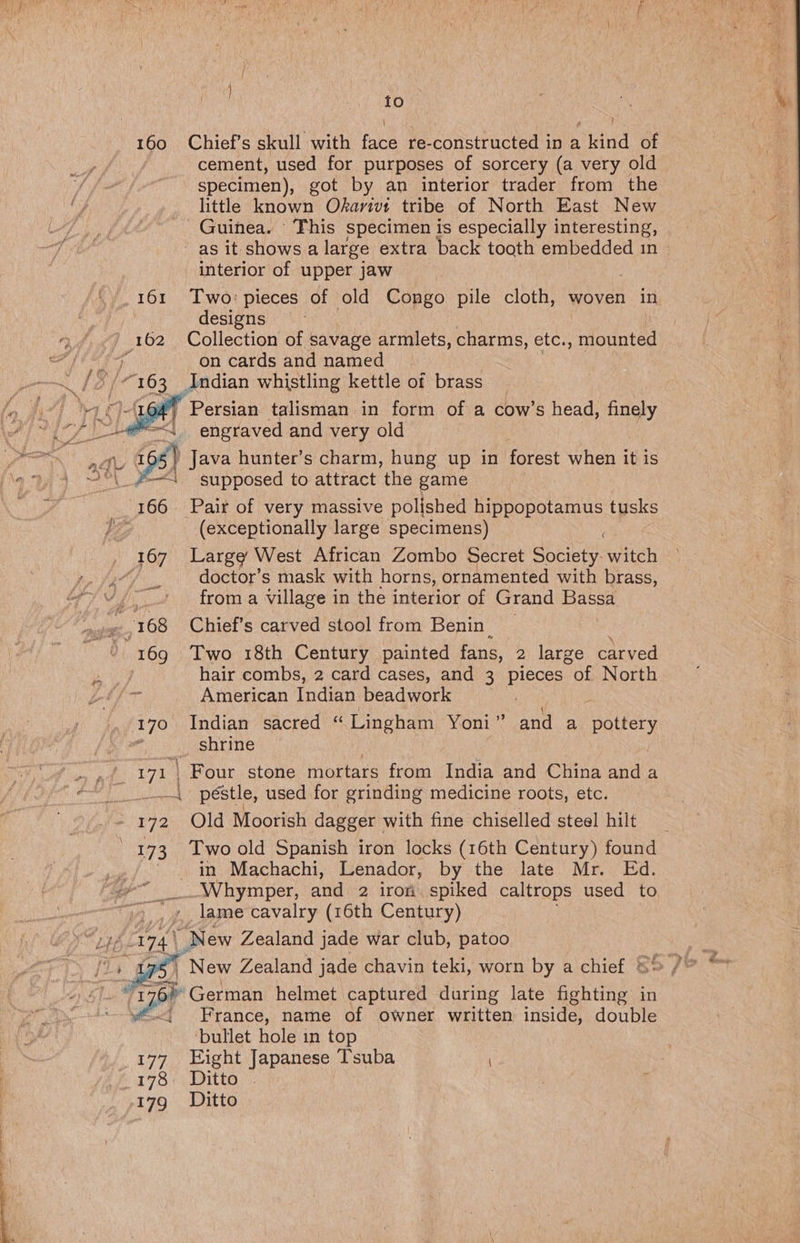 10
160 Chief's skull with face re-constructed in a kind of
cement, used for purposes of sorcery (a very old
specimen), got by an interior trader from the
little known Okarivi tribe of North East New
Guinea. This specimen is especially interesting,
as it shows a large extra back tooth embedded in
interior of upper jaw
161 Two pieces of old Congo pile cloth, woven in
designs
162 Collection of savage armlets, charms, etc., mounted
on cards and named
163 Indian whistling kettle of brass
164 Persian talisman in form of a cow's head, finely
engraved and very old
165 Java hunter's charm, hung up in forest when it is
supposed to attract the game
166 Pair of very massive polished hippopotamus tusks
(exceptionally large specimens)
167 Large West African Zombo Secret Society witch
doctor's mask with horns, ornamented with brass,
from a village in the interior of Grand Bassa
168 Chief's carved stool from Benin
169 Two 18th Century painted fans, 2 large carved
hair combs, 2 card cases, and 3 pieces of North
American Indian beadwork
170 Indian sacred “Lingham Yoni” and a pottery
shrine
171 Four stone mortars from India and China and a
pestle, used for grinding medicine roots, etc.
172 Old Moorish dagger with fine chiselled steel hilt
173 Two old Spanish iron locks (16th Century) found
in Machachi, Lenador, by the late Mr. Ed.
Whymper, and 2 iron spiked caltrops used to
lame cavalry (16th Century)
174 New Zealand jade war club, patoo
175 New Zealand jade chavin teki, worn by a chief
176 German helmet captured during late fighting in
France, name of owner written inside, double
bullet hole in top
177 Eight Japanese Tsuba
178 Ditto
179 Ditto